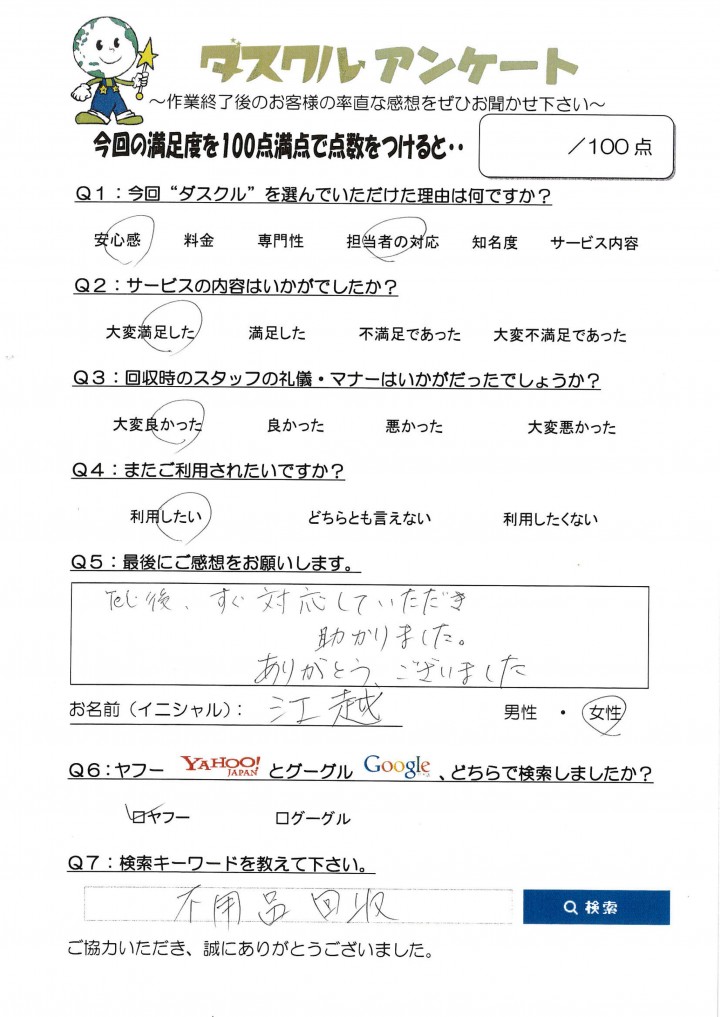 ダスクル アンケート
～作業終了後のお客様の率直な感想をぜひお聞かせ下さい～
今回の満足度を100点満点で点数をつけると‥ ／100点
Q1：今回“ダスクル”を選んでいただけた理由は何ですか？
安心感 料金 専門性 担当者の対応 知名度 サービス内容
Q2：サービスの内容はいかがでしたか？
大変満足した 満足した 不満足であった 大変不満足であった
Q3：回収時のスタッフの礼儀・マナーはいかがだったでしょうか？
大変良かった 良かった 悪かった 大変悪かった
Q4：またご利用されたいですか？
利用したい どちらとも言えない 利用したくない
Q5：最後にご感想をお願いします。
Tel後、すぐ対応していただき
助かりました。
ありがとうございました
お名前（イニシャル）： 江越 男性 ・ 女性
Q6：ヤフー YAHOO! JAPAN とグーグル Google 、どちらで検索しましたか？
☑ヤフー □グーグル
Q7：検索キーワードを教えて下さい。
不用品回収 検索
ご協力いただき、誠にありがとうございました。